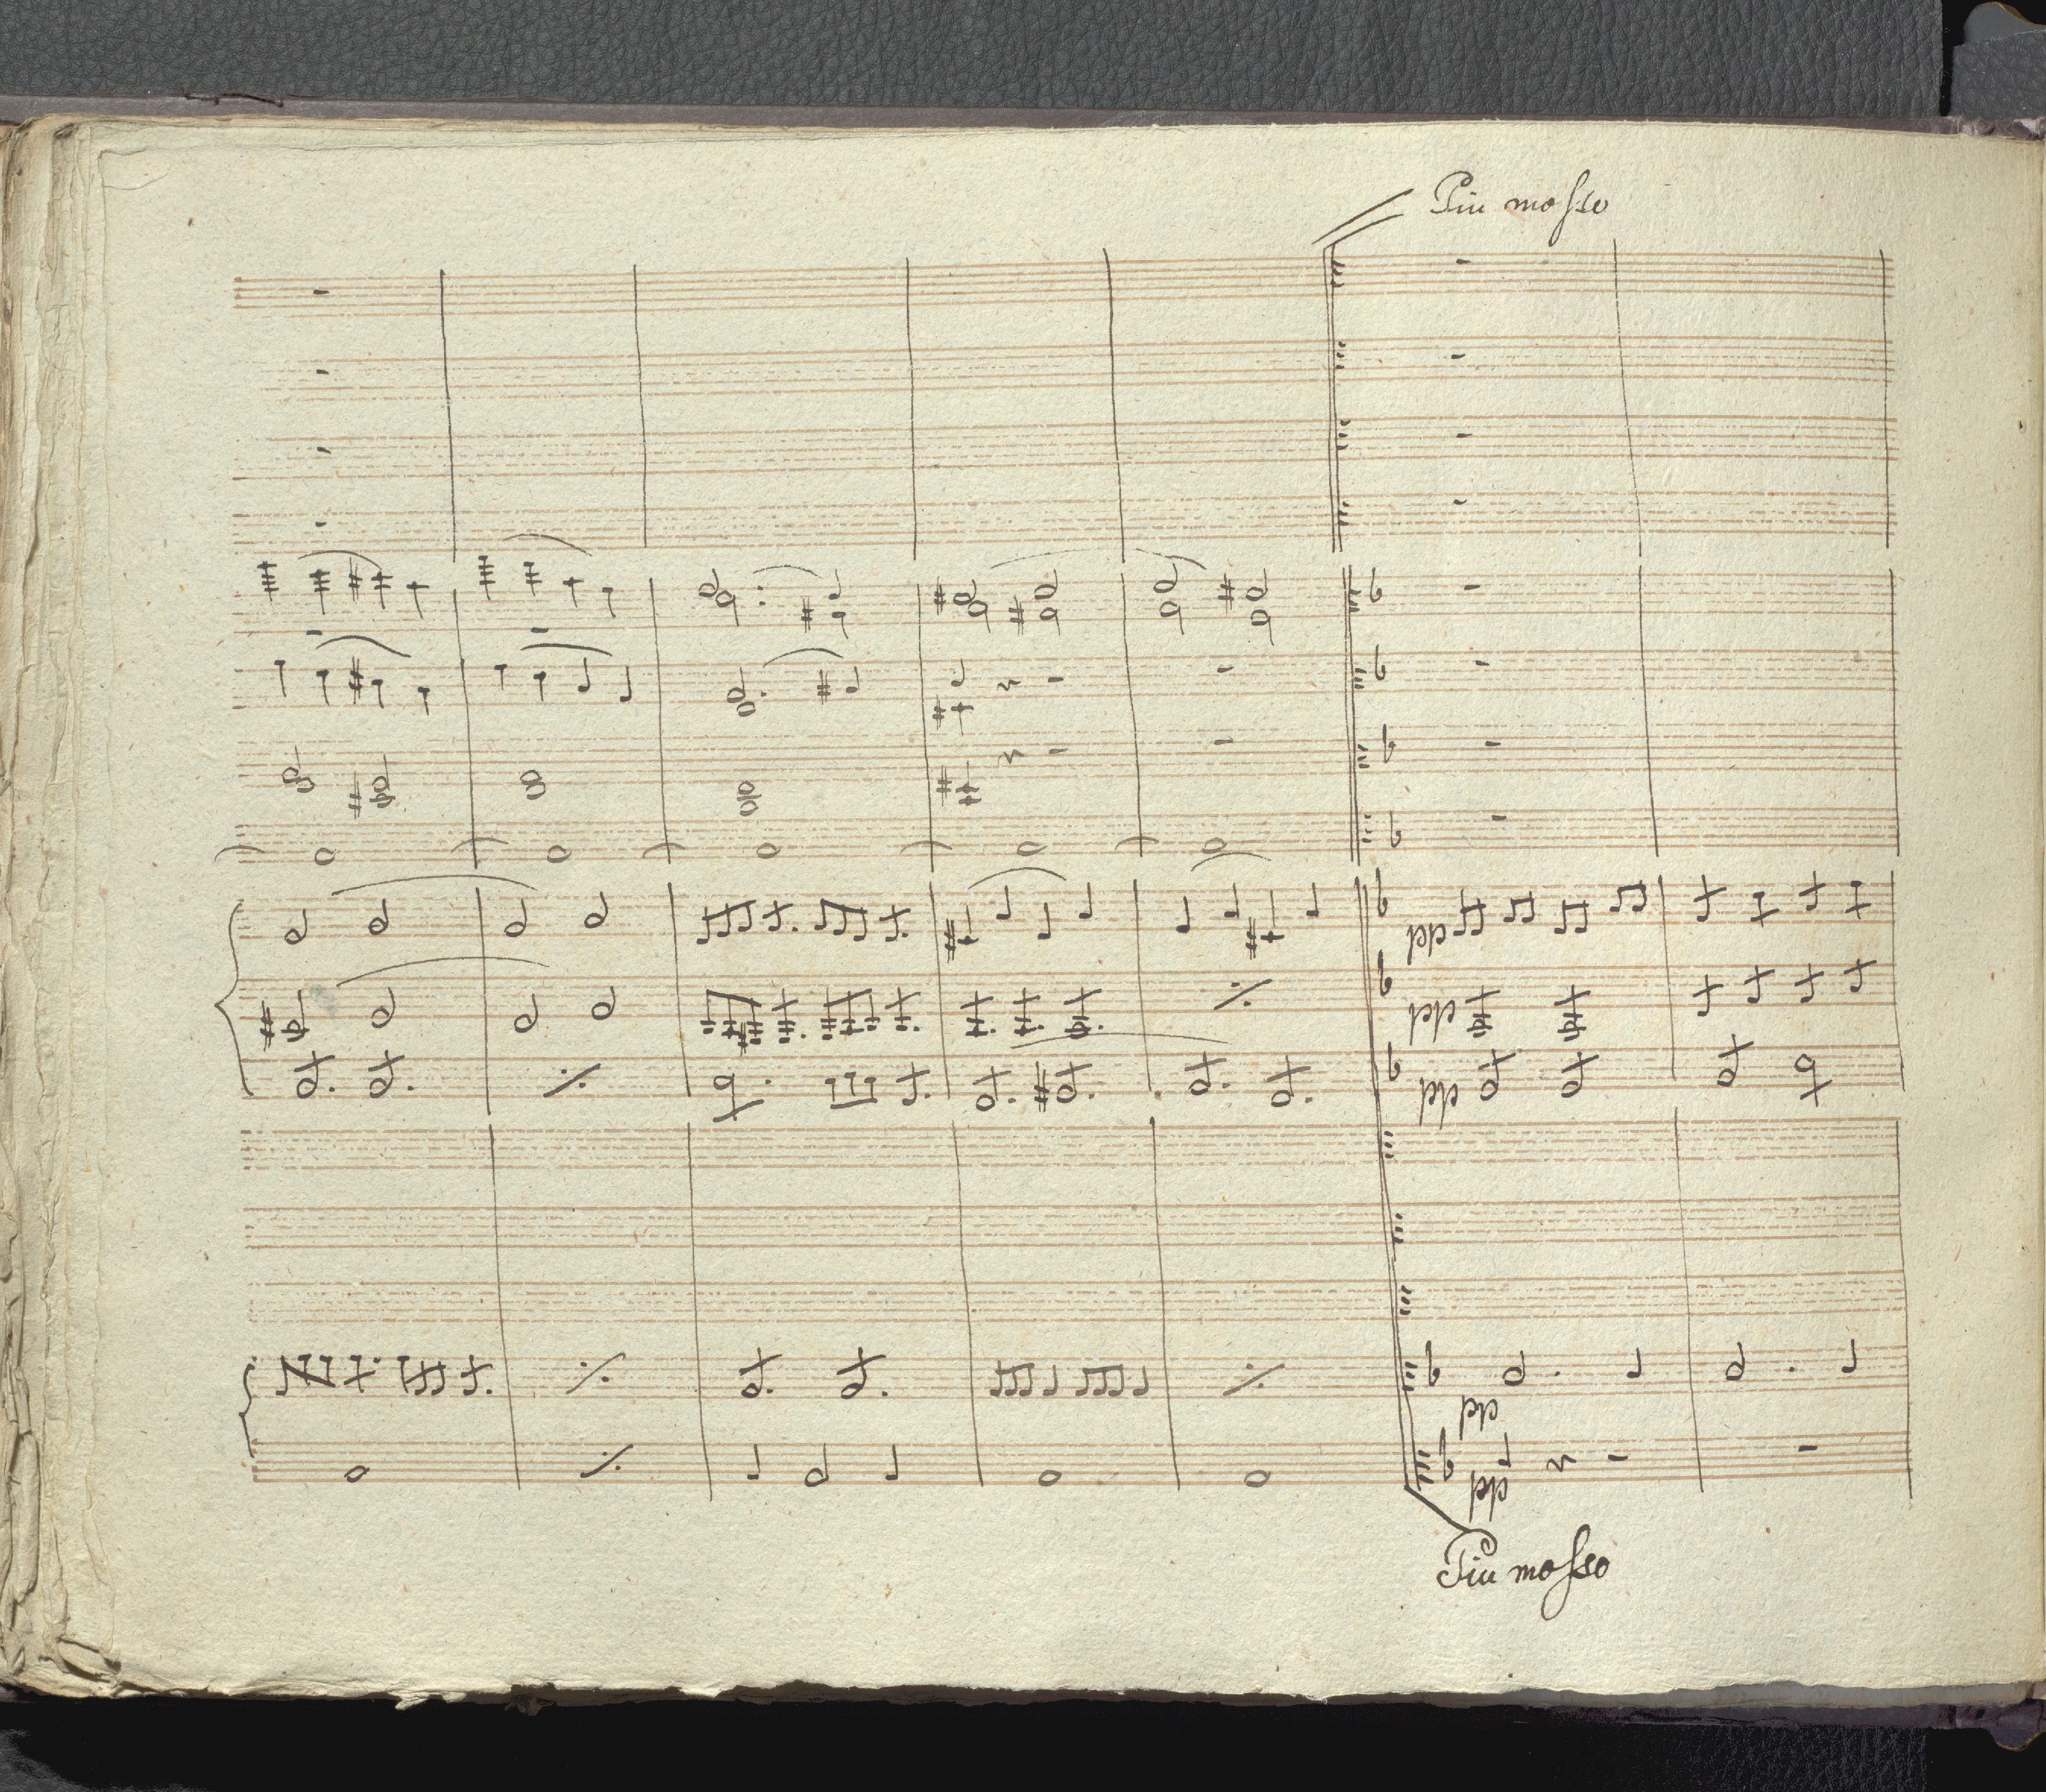 Piu mosso
pp
pp
pp
pp
pp
Piu mosso